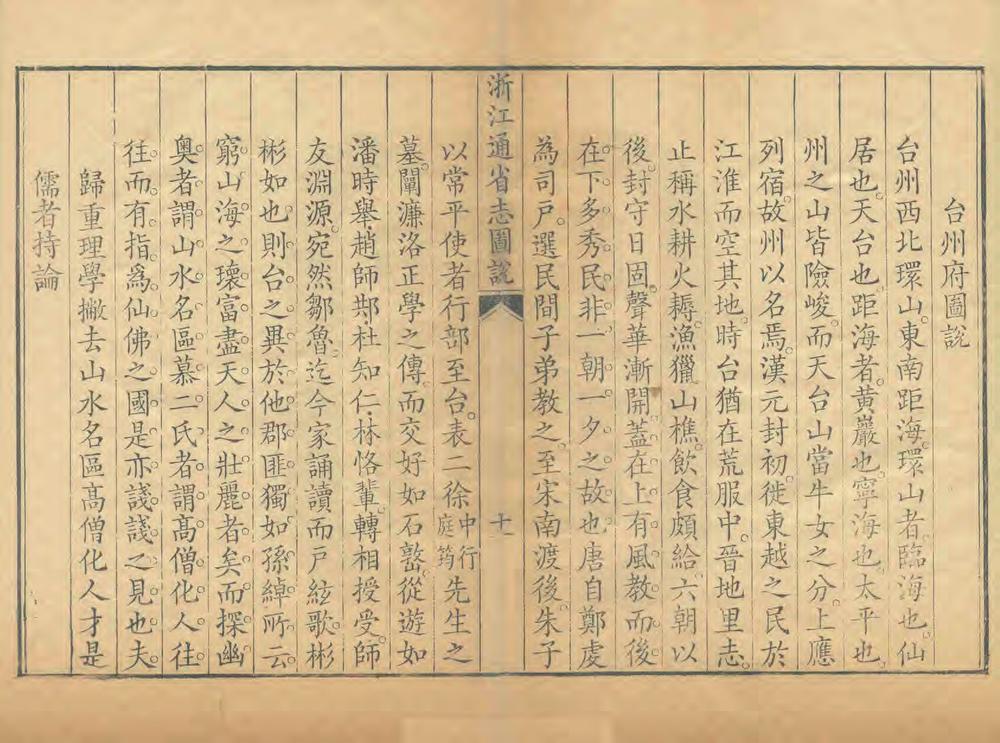 台州府圖說
台州西北環山。東南距海。環山者。臨海也。仙
居也。天台也。距海者。黃巖也。寧海也。太平也。
州之山皆險峻。而天台山當牛女之分。上應
列宿。故州以名焉。漢元封初。徙東越之民於
江淮而空其地。時台猶在荒服中。晉地里志。
止稱水耕火耨。漁獵山樵。飲食頗給。六朝以
後。封守日固。聲華漸開。蓋在上有風教。而後
在下多秀民。非一朝一夕之故也。唐自鄭虔
為司戶。選民間子弟教之。至宋南渡後。朱子
浙江通省志圖說
十一
以常平使者行部至台。表二徐中行庭筠先生之
墓。闡濂洛正學之傳。而交好如石𡼖。從遊如
潘時舉。趙師郱。杜知仁。林恪輩。轉相授受。師
友淵源。宛然鄒魯。迄今家誦讀而戶絃歌。彬
彬如也。則台之異於他郡。匪獨如孫綽所云
窮山海之瓌富。盡天人之壯麗者矣。而探幽
奧者。謂山水名區。慕二氏者。謂高僧化人。往
往而有。指為仙佛之國。是亦諓諓之見也夫。
歸重理學撇去山水名區高僧化人才是
儒者持論